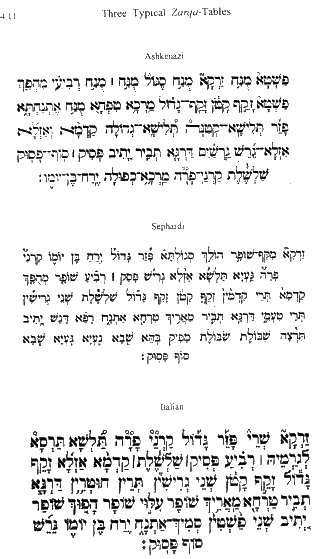 4.11
Three Typical Zarqa-Tables
Ashkenazi
פַּשְׁטָא מֻנַּח זַרְקָא מֻנַּח סֶגּוֹל מֻנַּח ׀ מֻנַּח רְבִיעִי מַהְפַּךְ
פַּשְׁטָא זָקֵף קָטֹן זָקֵף־גָּדוֹל מֵרְכָא טִפְחָא מֻנַּח אֶתְנַחְתָּא
פָּזֵר תְּלִישָׁא־קְטַנָּה תְּלִישָׁא־גְדוֹלָה קַדְמָא וְאַזְלָא
אַזְלָא־גֵּרֵשׁ גֵּרְשַׁיִם דַּרְגָּא תְּבִיר יְתִיב פְּסִיק ׀ סוֹף־פָּסוּק
שַׁלְשֶׁלֶת קַרְנֵי־פָרָה מֵרְכָא־כְפוּלָה יֶרַח־בֶּן־יוֹמוֹ׃
Sephardi
זַרְקָא מַקַּף־שׁוֹפָר הוֹלֵךְ סְגוֹלְתָּא פָּזֵר גָּדוֹל יֶרַח בֶּן יוֹמוֹ קַרְנֵי
פָרָה גַּעְיָא תַּלְשָׁא אַזְלָא גֵּרִישׁ פָּסֵק ׀ רְבִיעַ שׁוֹפָר מְהֻפָּךְ
קַדְמָא תְּרֵי קַדְמִין זָקֵף קָטֹן זָקֵף גָּדוֹל שַׁלְשֶׁלֶת שְׁנֵי גֵרִישִׁין
תְּרֵי טַעֲמֵי דַּרְגָּא תְּבִיר מַאֲרִיךְ טַרְחָא אַתְנָח רָפֵא דָּגֵשׁ יְתִיב
תִּרְצָה שִׁבּוֹלֶת סִבּוֹלֶת מַפִּיק בְּהֵא שְׁבָא גַּעְיָא גַּעְיָא שְׁבָא
סוֹף פָּסוּק׃
Italian
זַרְקָא שְׁרֵי פָּזֵר גָּדוֹל קַרְנֵי פָרָה תַּלְשָׁא תִּרְסָא
לְגַרְמֵיהּ ׀ רְבִיעַ פְּסִיק ׀ שַׁלְשֶׁלֶת ׀ קַדְמָא אַזְלָא זָקֵף
גָּדוֹל זָקֵף קָטֹן שְׁנֵי גֵרִישִׁין תְּרֵין חוּטְרִין דַּרְגָּא
תְּבִיר טַרְחָא מַאֲרִיךְ שׁוֹפָר עִלּוּי שׁוֹפָר הָפוּךְ שׁוֹפָר
יְתִיב שְׁנֵי פַשְׁטִין סָמִיךְ־אַתְנָח יֶרַח בֶּן יוֹמוֹ גֵּרֵשׁ
סוֹף פָּסוּק׃